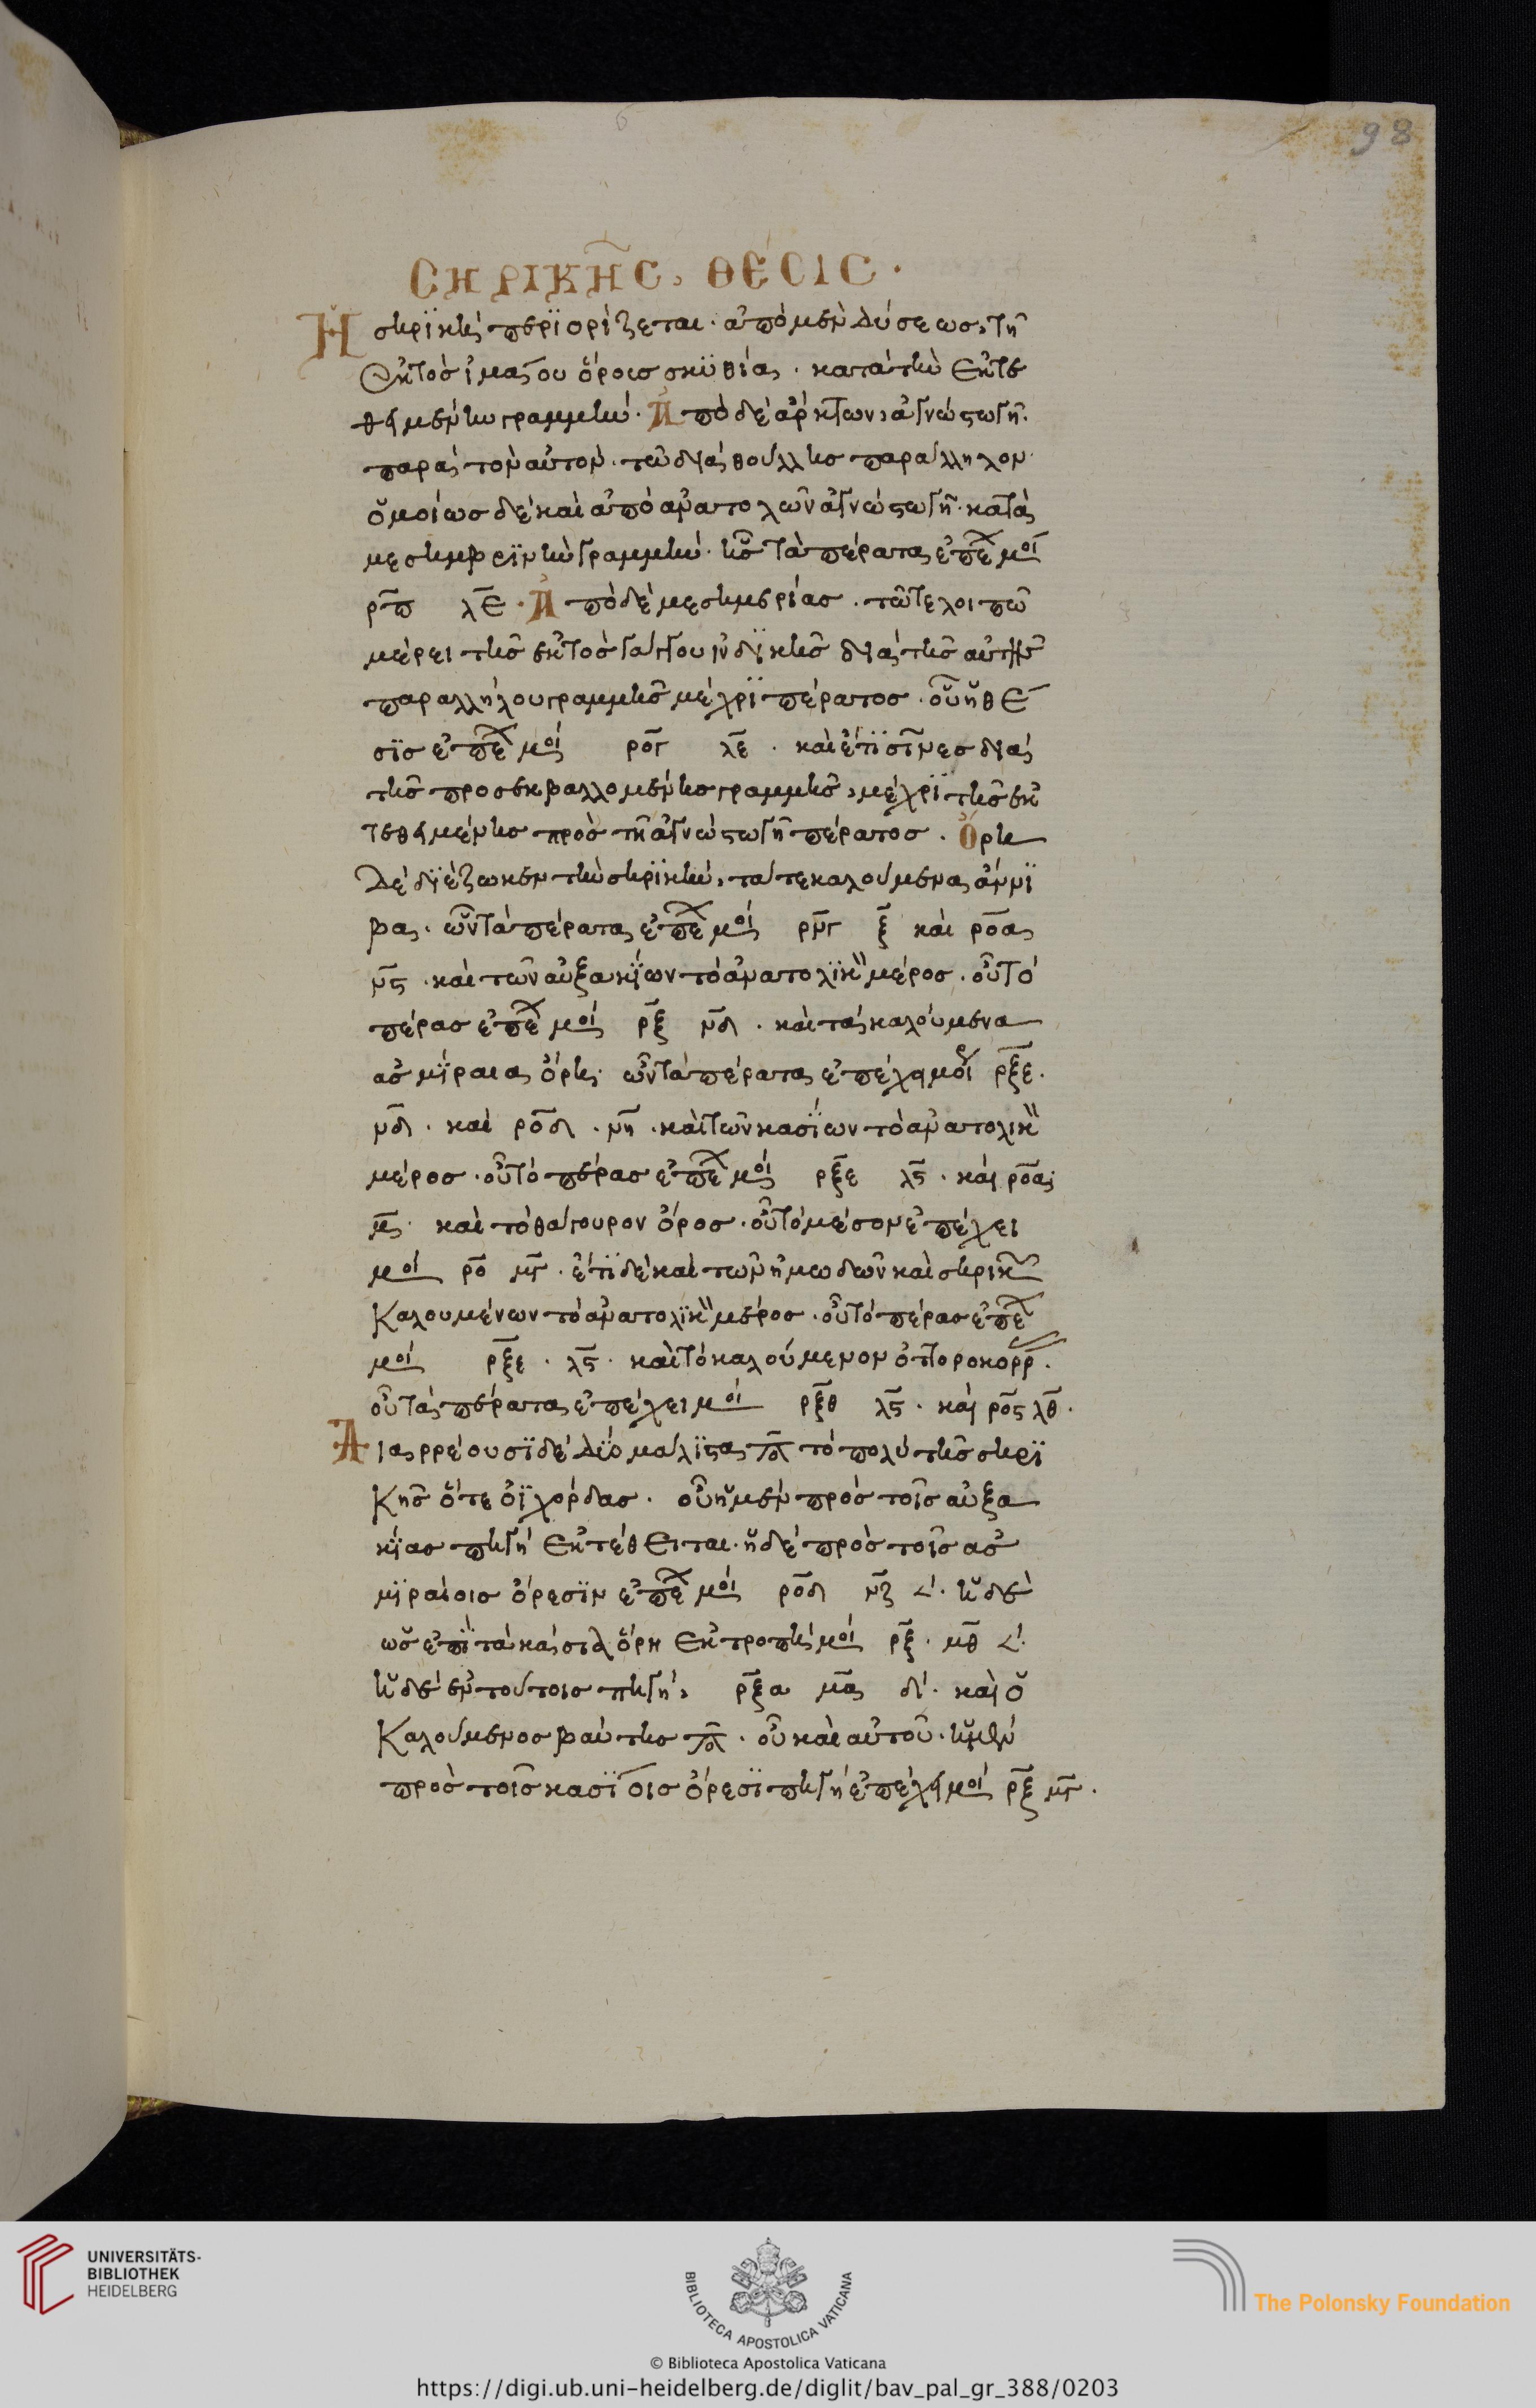 98
ϹΗΡΙΚΗ͂Ϲ, ΘΈϹΙϹ.
Ἡ σηρϊκὴ περϊορίζεται. ἀπὸ μὲν δύσεως, τῆ
ἐκτὸς ἰμάου ὄρους σκϋθία. κατὰ τὴν ἐκτε
θειμένην γραμμήν. Ἀπὸ δὲ ἄρκτων, ἀγνώστω γῆ.
παρὰ τὸν αὐτὸν. τῶ διὰ θούλλης παράλληλον.
ὁμοίως δὲ καὶ ἀπὸ ἀνατολῶν ἀγνώστω γῆ. κατὰ
μεσημβρϊνὴν γραμμήν. ἧς τὰ πέρατα ἐπέχ μοί
ρ̅π̅ λ̅ε̅. Ἀπὸ δὲ μεσημβρίας. τῶ τε λοιπῶ
μέρει τῆς ἐκτὸς γάγγου ἰνδϊκῆς διὰ τῆς αὐτῆς
παραλλήλου γραμμῆς μέχρϊ πέρατος. οὗ ἡ θέ
σϊς ἐπέχ μοί ρ̅ο̅γ̅ λ̅ε̅. καὶ ἔτϊ σῖνες διὰ
τῆς προσεκβαλλομένης γραμμῆς, μέχρϊ τῆς ἐκ
τεθειμένης πρὸς τῆ ἀγνώστω γῆ πέρατος. Ὄρη
δὲ δϊέζωκεν τὴν σηρϊκήν, τά τε καλούμενα ἄννϊ
βα. ὧν τὰ πέρατα ἐπέχ μοί ρ̅ν̅γ̅ ξ̅ καὶ ρ̅ο̅α̅
ν̅ς̅. καὶ τῶν αὐξακϊων τὸ ἀνατολϊκ μέρος. οὗ τὸ
πέρας ἐπέχ μοί ρ̅ξ̅ ν̅δ̅. καὶ τὰ καλούμενα
ἀσμϊραια ὄρη. ὧν τὰ πέρατα ἐπέχει μοί ρ̅ξ̅ε̅.
ν̅δ̅. καὶ ρ̅ο̅δ̅. ν̅η̅. καὶ τῶν κασϊων τὸ ἀνατολικ
μέρος. οὗ τὸ πέρας ἐπέχ μοί ρ̅ξ̅ε̅ λ̅ς̅. καὶ ρ̅ο̅α̅
μ̅ς̅. καὶ τὸ θάγουρον ὄρος. οὗ τὸ μέσον ἐπέχει
μοί ρ̅ο̅ μ̅γ̅. ἔτϊ δὲ καὶ τῶν ἠμωδῶν καὶ σηρικ
Καλουμένων τὸ ἀνατολϊκ μέρος. οὗ τὸ πέρας ἐπέχ
μοί ρ̅ξ̅ε̅. λ̅ς̅. καὶ τὸ καλούμενον ὀττοροκορρ.
οὗ τὰ πέρατα ἐπέχει μοί ρ̅ξ̅θ̅ λ̅ς̅. καὶ ρ̅ο̅ς̅ λ̅θ̅.
Διαρρέουσϊ δὲ δύο μάλϊστα πο τὸ πολὺ τῆς σηρϊ
Κῆς ὅ τε οἰχόρδας. οὗ ἡ μὲν πρὸς τοῖς αὐξα
κίας πηγὴ ἐκτέθειται. ἡ δὲ πρὸς τοῖς ἀσ
μϊραίοις ὄρεσϊν ἐπέχ μοί ρ̅ο̅δ̅ ν̅ζ̅ 𐅵. ἡ δὲ
ὡς ἐπὶ τὰ κάσια ὄρη ἐκτροπὴ μοί ρ̅ξ̅. μ̅θ̅ 𐅵.
ἡ δὲ ἐν τούτοις πηγὴ, ρ̅ξ̅α̅ μ̅α̅ δ. καὶ ὁ
Καλούμενος βαύτης πο. οὗ καὶ αὐτοῦ. ἡ μὲν
πρὸς τοῖς κασϊοις ὄρεσϊ πηγὴ ἐπέχει μοί ρ̅ξ̅ μ̅γ̅.
UNIVERSITÄTS-
BIBLIOTHEK
HEIDELBERG
BIBLIOTECA APOSTOLICA VATICANA
The Polonsky Foundation
© Biblioteca Apostolica Vaticana
https://digi.ub.uni-heidelberg.de/diglit/bav_pal_gr_388/0203